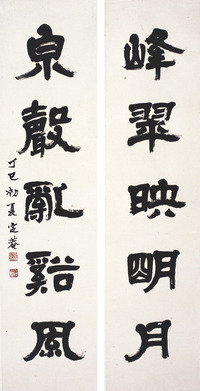 峰翠映明月
泉聲亂谿風
丁巳初夏定菴